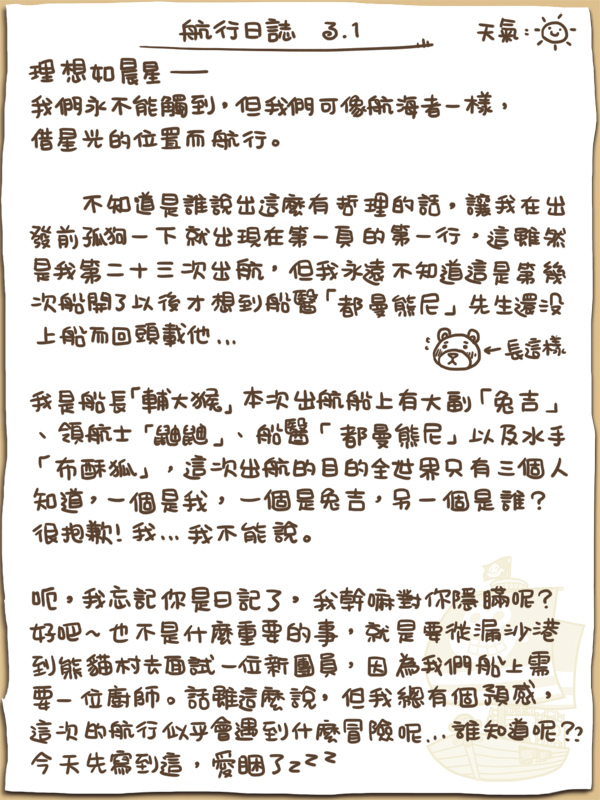 航行日誌 3.1
天氣:
理想如晨星——
我們永不能觸到,但我們可像航海者一樣,
借星光的位置而航行。
不知道是誰說出這麼有哲理的話,讓我在出
發前孤狗一下就出現在第一頁的第一行,這雖然
是我第二十三次出航,但我永遠不知道這是第幾
次船開了以後才想到船醫「都曼熊尼」先生還沒
上船而回頭載他...
←長這樣
我是船長「輔大猴」本次出航船上有大副「兔吉」
、領航士「鼬鼬」、船醫「都曼熊尼」以及水手
「布酥狐」,這次出航的目的全世界只有三個人
知道,一個是我,一個是兔吉,另一個是誰?
很抱歉!我...我不能說。
呃,我忘記你是日記了,我幹嘛對你隱瞞呢?
好吧~也不是什麼重要的事,就是要從漏沙港
到熊貓村去面試一位新團員,因為我們船上需
要一位廚師。話雖這麼說,但我總有個預感,
這次的航行似乎會遇到什麼冒險呢...誰知道呢??
今天先寫到這,愛睏了zzz